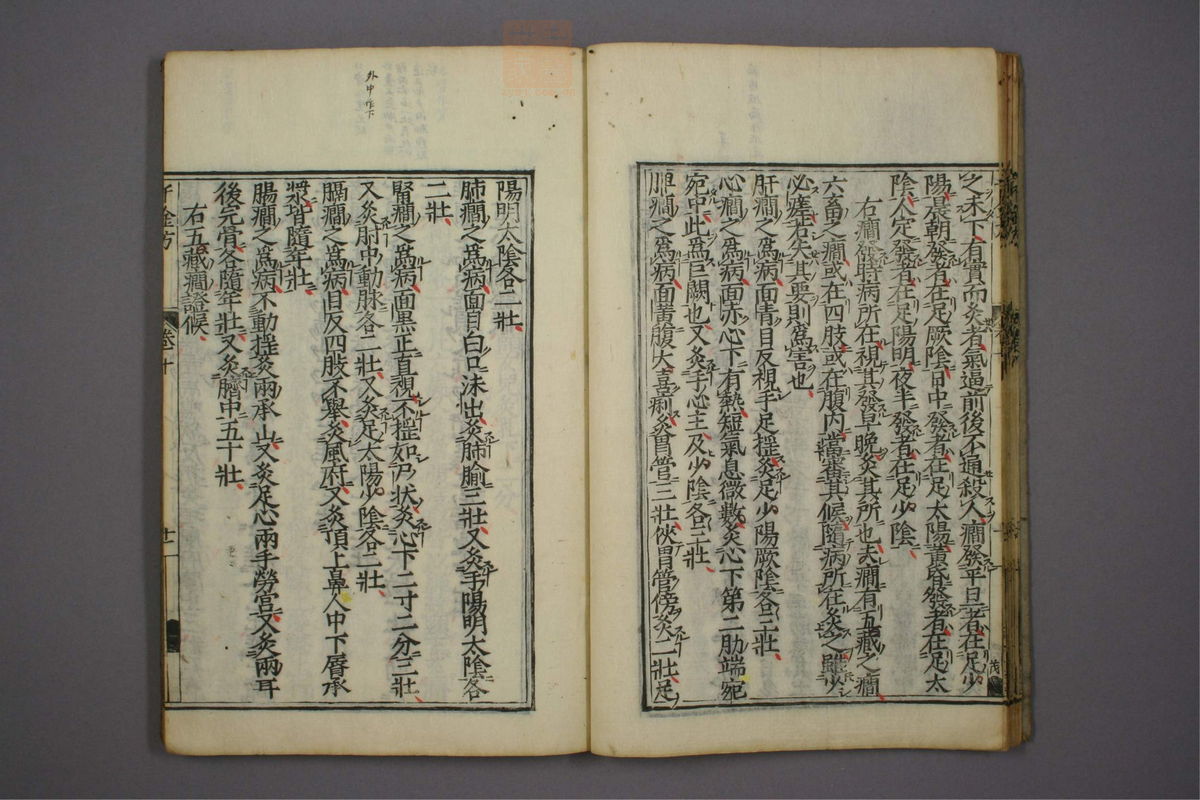 之未下有實而灸者氣逼前後不通殺人癇發平旦者在足少
陽晨朝發者在足厥陰日中發者在足太陽黃昏發者在足太
陰人定發者在足陽明夜半發者在足少陰
右癇發時病所在視其發早晚灸其所也夫癇有五藏之癇
六畜之癇或在四肢或在腹内當審其候隨病所在灸之雖少
必瘥若失其要則爲害也
肝癇之爲病面青目反視手足揺灸足少陽厥陰各三壯
心癇之爲病面赤心下有熱短氣息微數灸心下第二肋端宛
宛中此爲巨闕也又灸手心主及少陰各三壯
脾癇之爲病面黃腹大喜痢灸胃管三壯俠胃管傍灸二壯足
陽明太陰各二壯
肺癇之爲病面目白口沫出灸肺腧三壯又灸手陽明太陰各
二壯
腎癇之爲病面黑正直視不揺如尸狀灸心下二寸二分三壯
又灸肘中動脉各二壯又灸足太陽少陰各二壯
膈癇之爲病目反四肢不舉灸風府又灸頂上鼻人中下唇承
漿皆隨年壯
腸癇之爲病不動揺灸兩承山又灸足心兩手勞宮又灸兩耳
後完骨各隨年壯又灸臍中五十壯
右五藏癇證候
千金方 卷十 廿一
外中作下